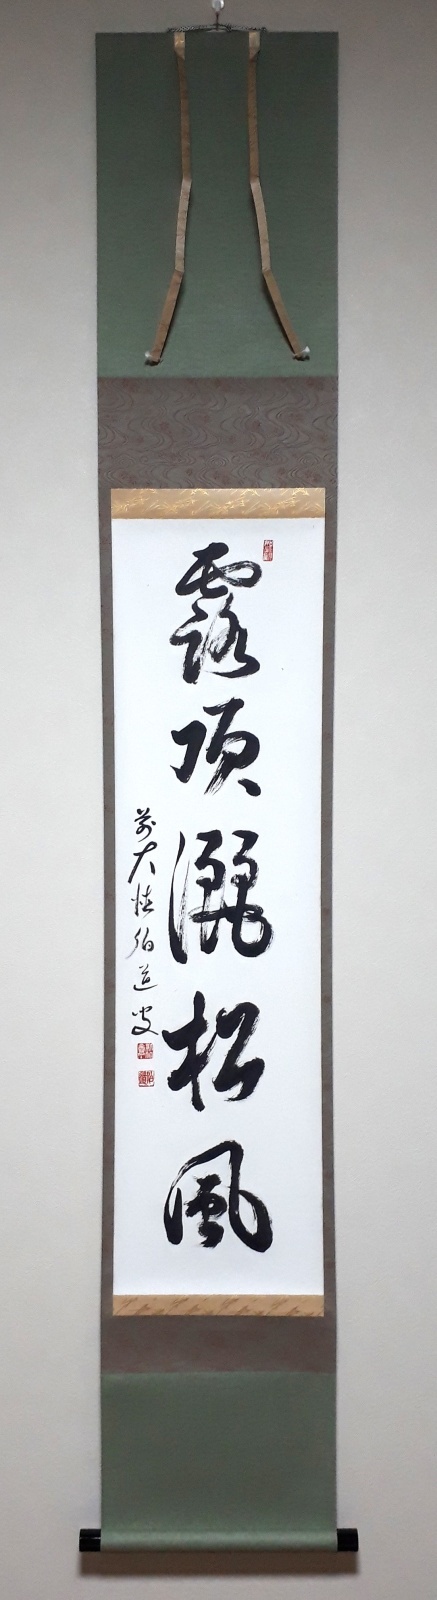 露頂灑松風
前大徳伯道叟